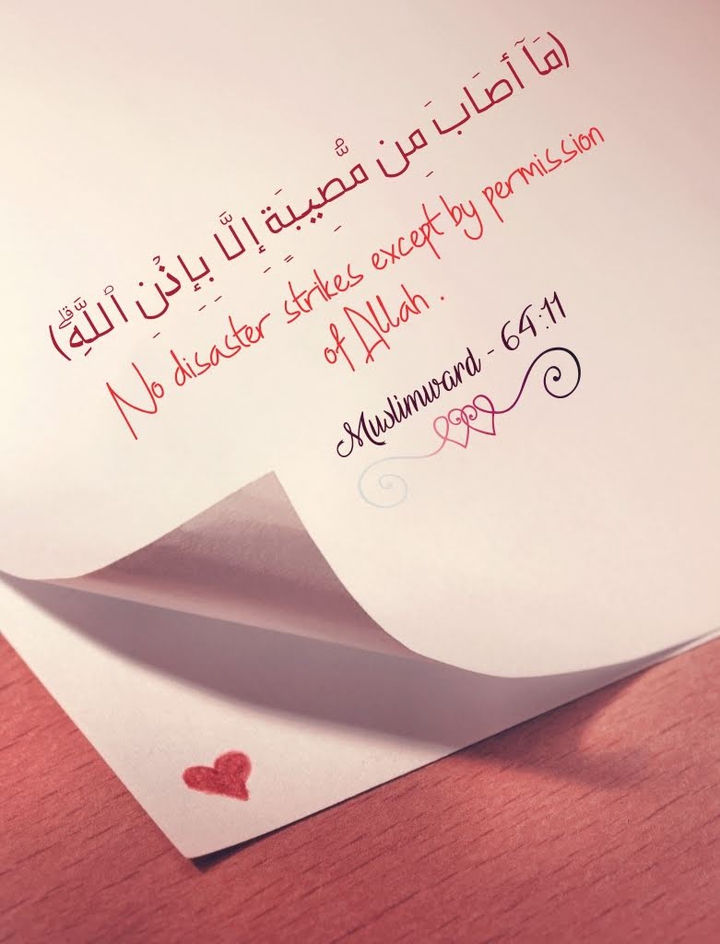 (مَآ أَصَابَ مِن مُّصِيبَةٍ إِلَّا بِإِذْنِ ٱللَّهِۗ)
No disaster strikes except by permission
of Allah .
Muslimward - 64:11